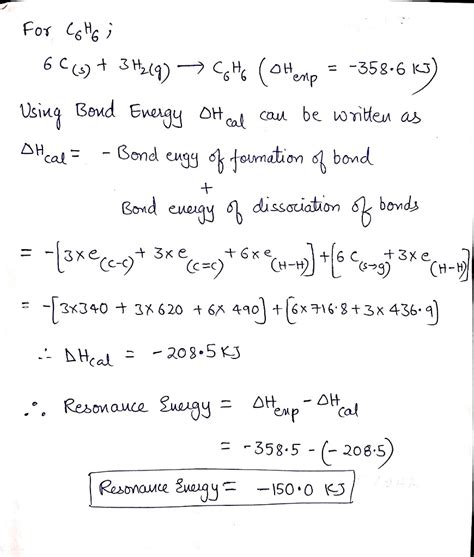 For C₆H₆ ;
6 C(s) + 3H₂(g) → C₆H₆ (ΔHexp = -358.6 KJ)
Using Bond Energy ΔHcal can be written as
ΔHcal = - Bond engy of formation of bond
+
Bond energy of dissociation of bonds
= -[3×e(C-C) + 3×e(C=C) + 6×e(H-H)] + [6 C(s→g) + 3×e(H-H)]
= -[3×340 + 3×620 + 6×490] + [6×716.8 + 3×436.9]
∴ ΔHcal = -208.5 KJ
∴ Resonance Energy = ΔHexp - ΔHcal
= -358.5 - (-208.5)
Resonance Energy = -150.0 KJ